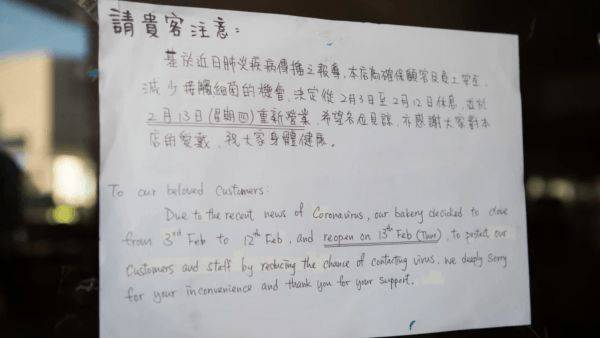 請貴客注意：
基於近日肺炎疾病傳播之報導，本店為確保顧客及員工安全，
減少接觸細菌的機會，決定從2月3日至2月12日休息，並於
2月13日(星期四)重新營業，希望各位見諒，亦感謝大家對本
店的愛戴，祝大家身體健康。
To our beloved customers:
Due to the recent news of Coronavirus, our bakery decided to close
from 3rd Feb to 12th Feb, and reopen on 13th Feb (Thur), to protect our
customers and staff by reducing the chance of contacting virus. We deeply sorry
for your inconvenience and thank you for your support.